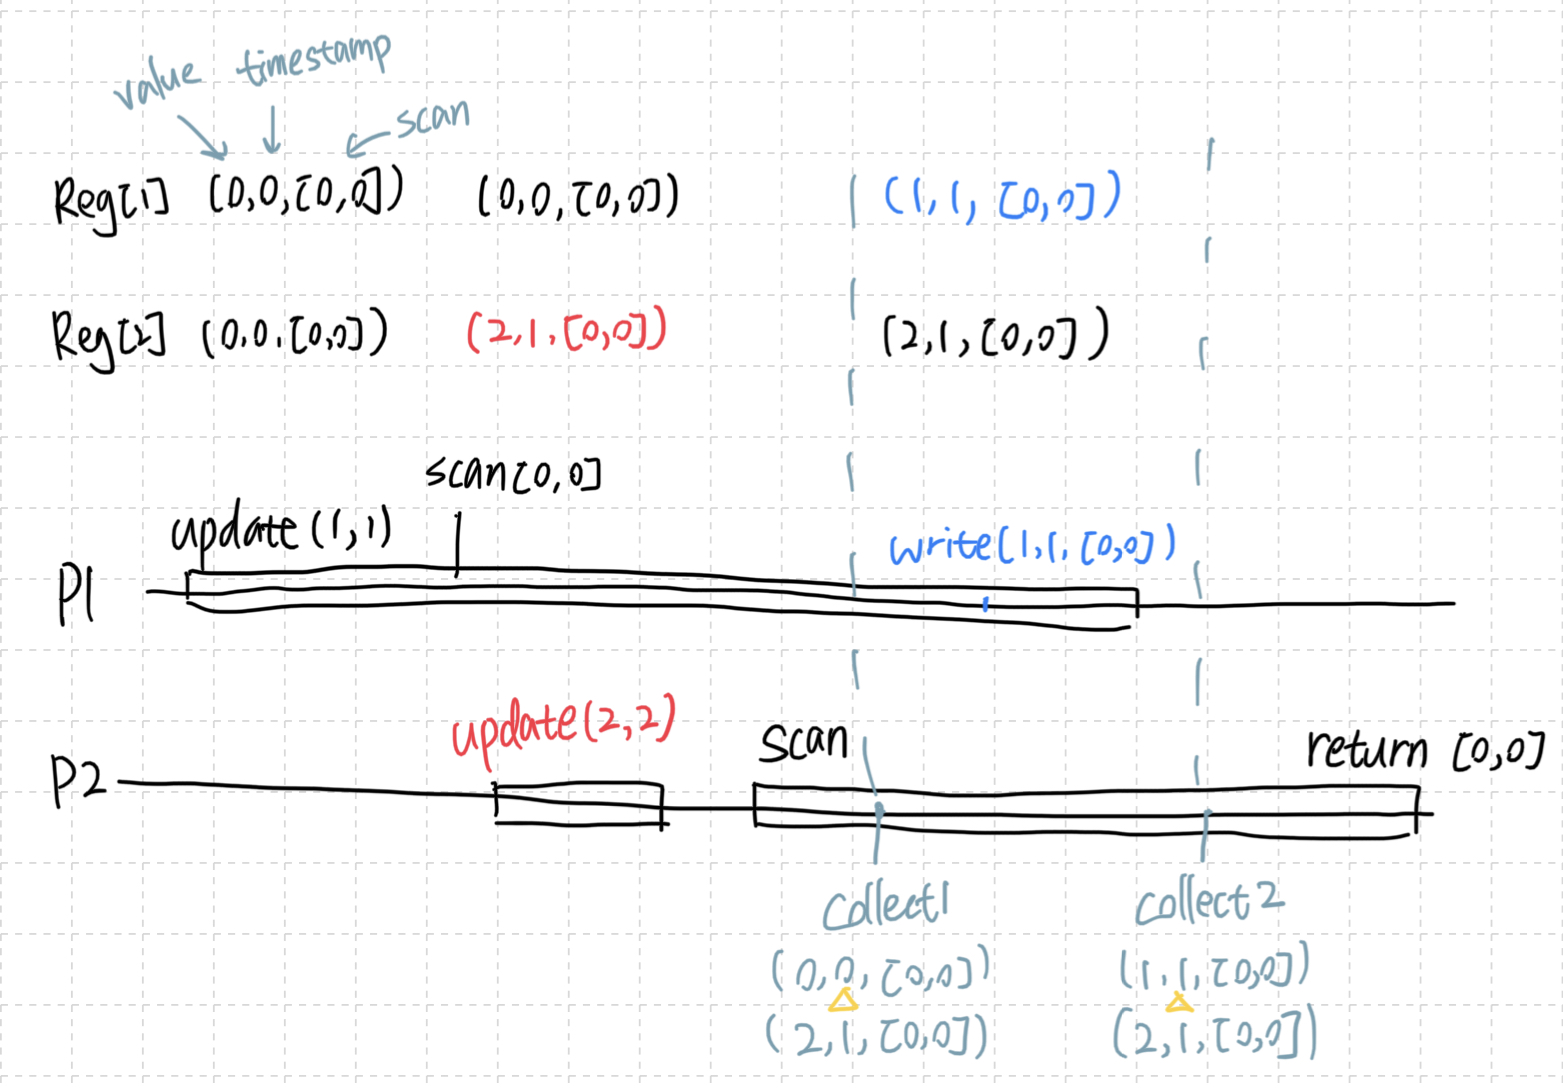 value timestamp
scan
Reg[1] (0,0,[0,0]) (0,0,[0,0]) (1,1,[0,0])
Reg[2] (0,0,[0,0]) (2,1,[0,0]) (2,1,[0,0])
scan[0,0]
update(1,1)
write(1,1,[0,0])
P1
update(2,2)
scan
return [0,0]
P2
collect1 collect2
(0,0,[0,0]) (1,1,[0,0])
(2,1,[0,0]) (2,1,[0,0])